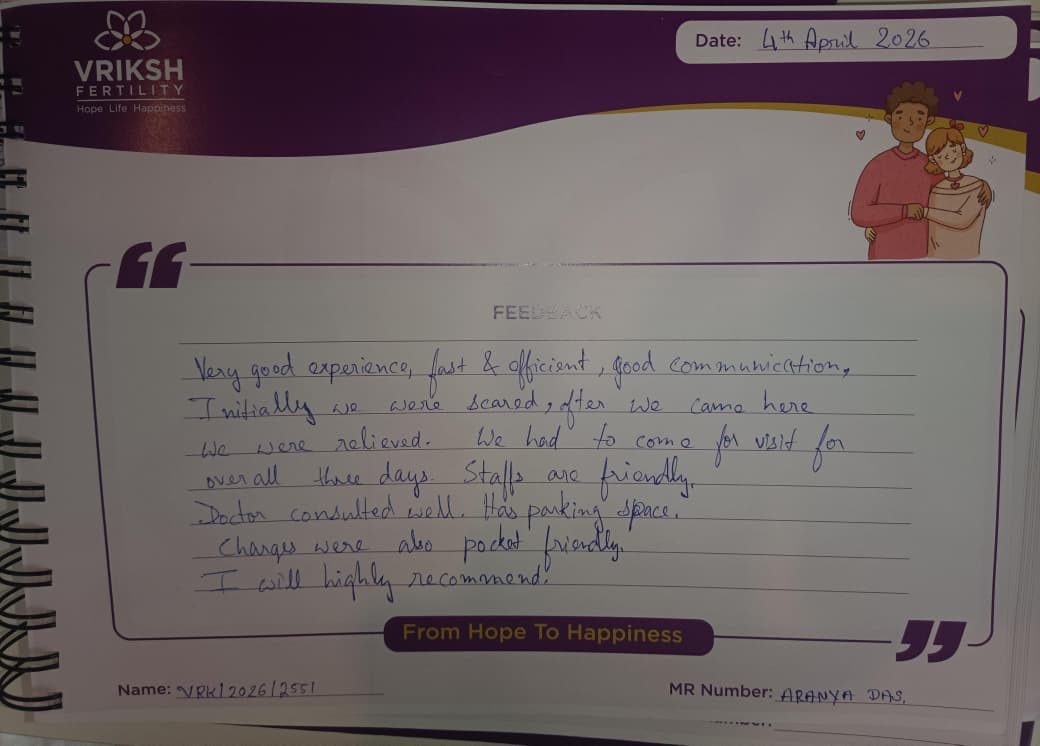 VRIKSH
FERTILITY
Hope Life Happiness
Date: 4th April 2026
FEEDBACK
Very good experience, fast & efficient, good communication,
Initially we were scared, after we came here
We were relieved. We had to come for visit for
over all three days. Staffs are friendly.
Doctor consulted well. Has parking space.
Charges were also pocket friendly.
I will highly recommend.
From Hope To Happiness
Name: VRK/2026/2551
MR Number: ARANYA DAS.